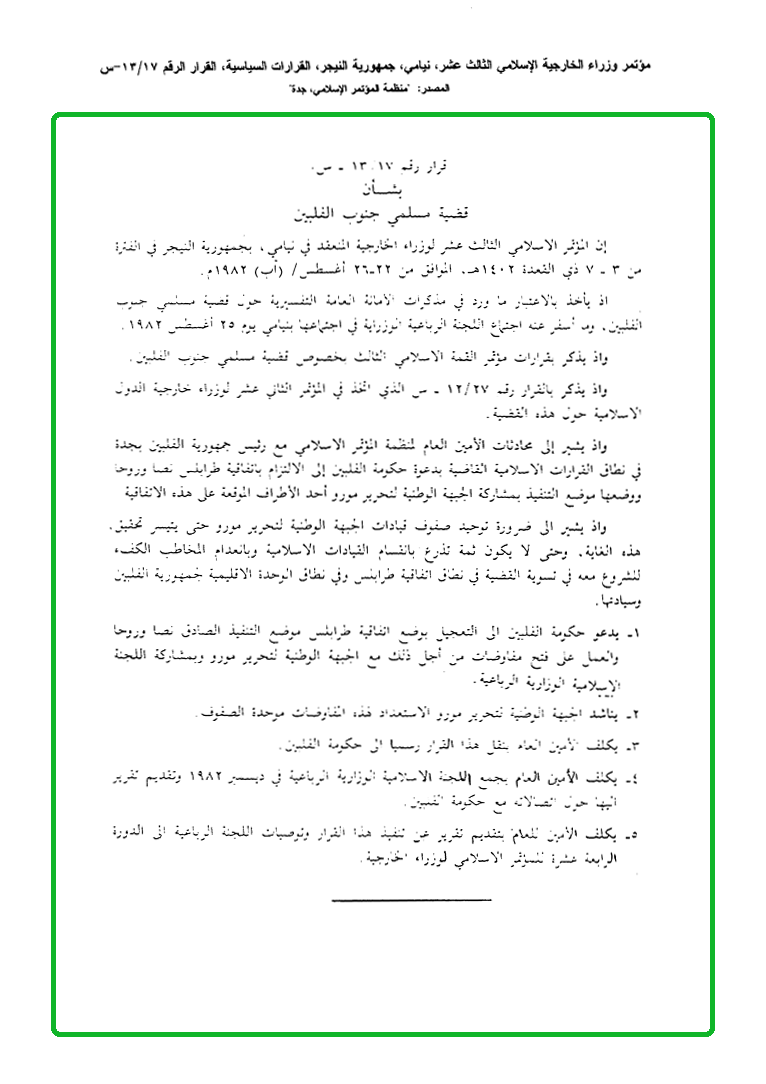 مؤتمر وزراء الخارجية الإسلامي الثالث عشر، نيامي، جمهورية النيجر، القرارات السياسية، القرار الرقم ١٣/١٧-س
المصدر: "منظمة المؤتمر الإسلامي، جدة"
قرار رقم ١٣/١٧ ـ س.
بشـــأن
قضية مسلمي جنوب الفلبين
إن المؤتمر الاسلامي الثالث عشر لوزراء الخارجية المنعقد في نيامي، بجمهورية النيجر في الفترة
من ٣ ـ ٧ ذي القعدة ١٤٠٢هـ، الموافق من ٢٢ـ٢٦ أغسطس/ (أب) ١٩٨٢م.
اذ يأخذ بالاعتبار ما ورد في مذكرات الأمانة العامة التفسيرية حول قضية مسلمي جنوب
الفلبين، وما أسفر عنه اجتماع اللجنة الرباعية الوزراية في اجتماعها بنيامي يوم ٢٥ أغسطس ١٩٨٢.
واذ يذكر بقرارات مؤتمر القمة الاسلامي الثالث بخصوص قضية مسلمي جنوب الفلبين.
واذ يذكر بالقرار رقم ١٢/٢٧ ـ س الذي اتخذ في المؤتمر الثاني عشر لوزراء خارجية الدول
الاسلامية حول هذه القضية.
واذ يشير إلى محادثات الأمين العام لمنظمة المؤتمر الاسلامي مع رئيس جمهورية الفلبين بجدة
في نطاق القرارات الاسلامية القاضية بدعوة حكومة الفلبين إلى الالتزام باتفاقية طرابلس نصا وروحا
ووضعها موضع التنفيذ بمشاركة الجبهة الوطنية لتحرير مورو أحد الأطراف الموقعة على هذه الاتفاقية
واذ يشير الى ضرورة توحيد صفوف قيادات الجبهة الوطنية لتحرير مورو حتى يتيسر تحقيق.
هذه الغاية. وحتى لا يكون ثمة تذرع بانقسام القيادات الاسلامية وبانعدام المخاطب الكفء
للشروع معه في تسوية القضية في نطاق اتفاقية طرابلس وفي نطاق الوحدة الاقليمية لجمهورية الفلبين
وسيادتها.
١ـ يدعو حكومة الفلبين الى التعجيل بوضع اتفاقية طرابلس موضع التنفيذ الصادق نصا وروحا
والعمل على فتح مفاوضات من أجل ذلك مع الجبهة الوطنية لتحرير مورو وبمشاركة اللجنة
الإسلامية الوزارية الرباعية.
٢ـ يناشد الجبهة الوطنية لتحرير مورو الاستعداد لهذه المفاوضات موحدة الصفوف.
٣ـ يكلف الأمين العام بنقل هذا القرار رسميا الى حكومة الفلبين.
٤ـ يكلف الأمين العام بجمع اللجنة الاسلامية الوزارية الرباعية في ديسمبر ١٩٨٢ وتقديم تقرير
اليها حول اتصالاته مع حكومة الفلبين.
٥ـ يكلف الأمين العام بتقديم تقرير عن تنفيذ هذا القرار وتوصيات اللجنة الرباعية الى الدورة
الرابعة عشرة للمؤتمر الاسلامي لوزراء الخارجية.